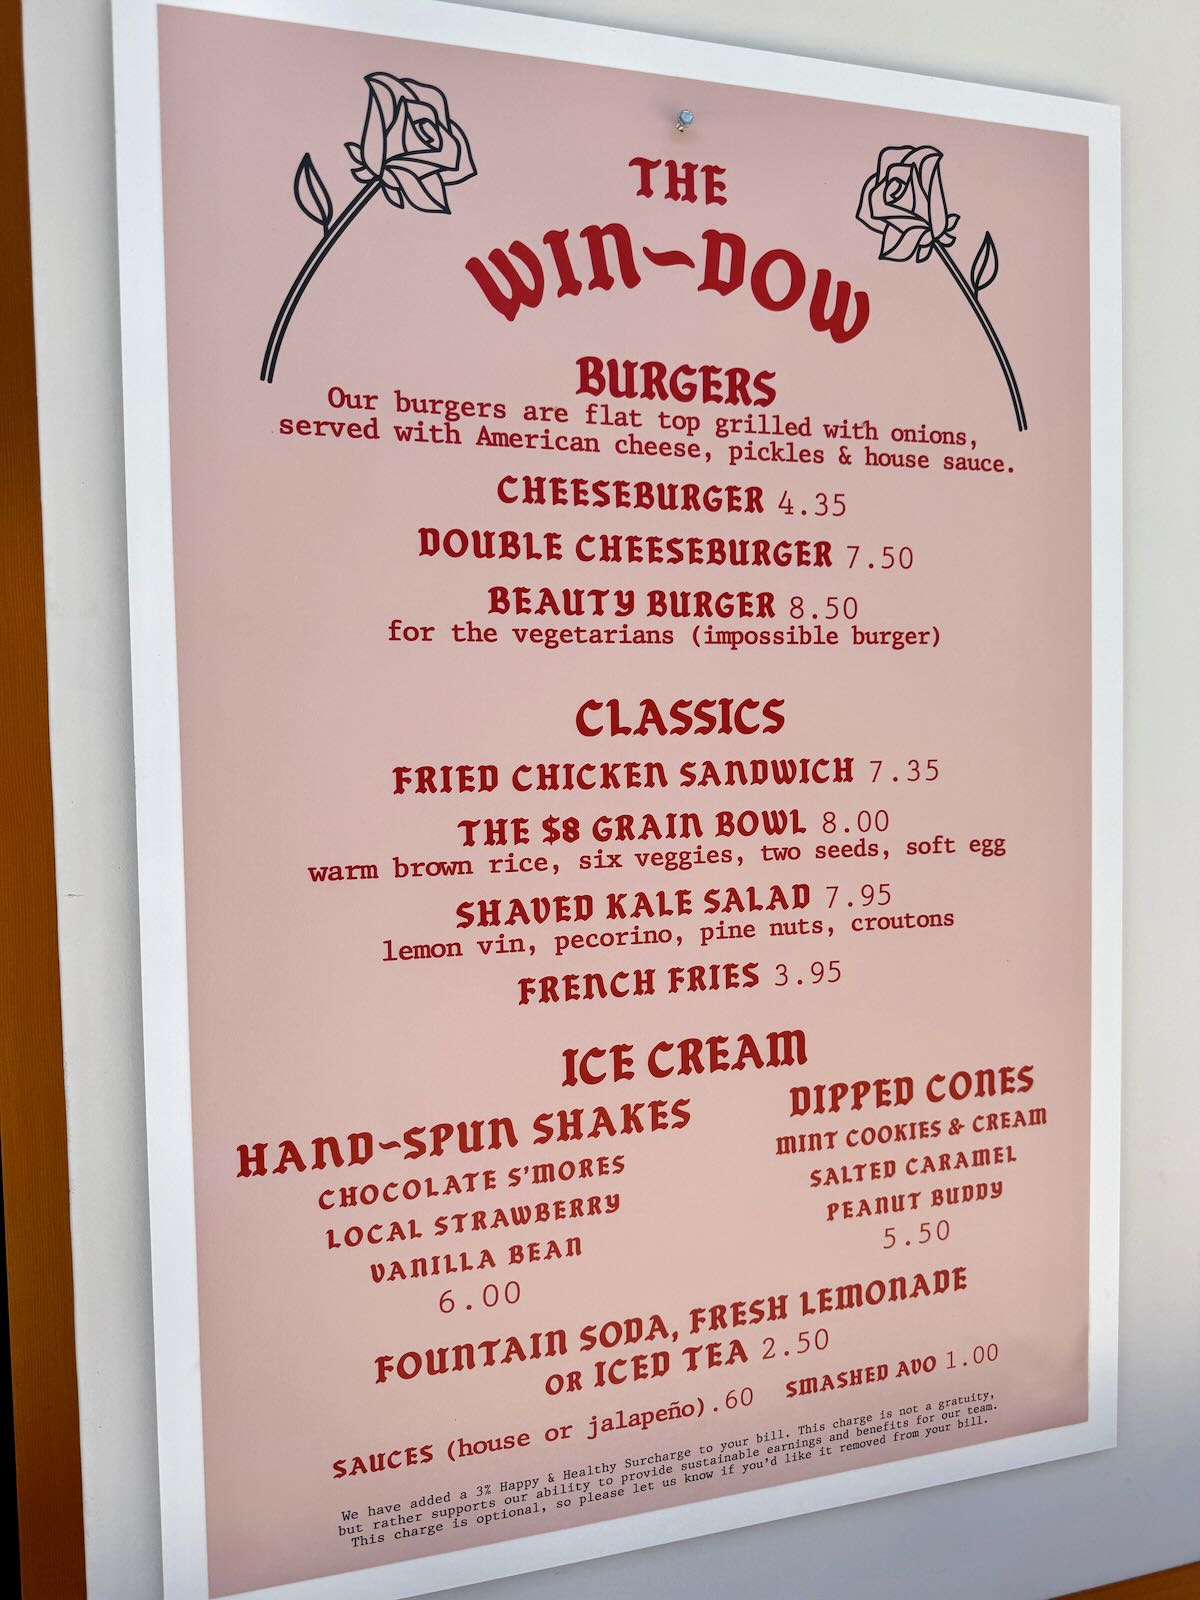 THE
WIN~DOW
BURGERS
Our burgers are flat top grilled with onions,
served with American cheese, pickles & house sauce.
CHEESEBURGER 4.35
DOUBLE CHEESEBURGER 7.50
BEAUTY BURGER 8.50
for the vegetarians (impossible burger)
CLASSICS
FRIED CHICKEN SANDWICH 7.35
THE $8 GRAIN BOWL 8.00
warm brown rice, six veggies, two seeds, soft egg
SHAVED KALE SALAD 7.95
lemon vin, pecorino, pine nuts, croutons
FRENCH FRIES 3.95
ICE CREAM
HAND~SPUN SHAKES
CHOCOLATE S'MORES
LOCAL STRAWBERRY
VANILLA BEAN
6.00
DIPPED CONES
MINT COOKIES & CREAM
SALTED CARAMEL
PEANUT BUDDY
5.50
FOUNTAIN SODA, FRESH LEMONADE
OR ICED TEA 2.50
SAUCES (house or jalapeño).60 SMASHED AVO 1.00
We have added a 3% Happy & Healthy Surcharge to your bill. This charge is not a gratuity,
but rather supports our ability to provide sustainable earnings and benefits for our team.
This charge is optional, so please let us know if you'd like it removed from your bill.